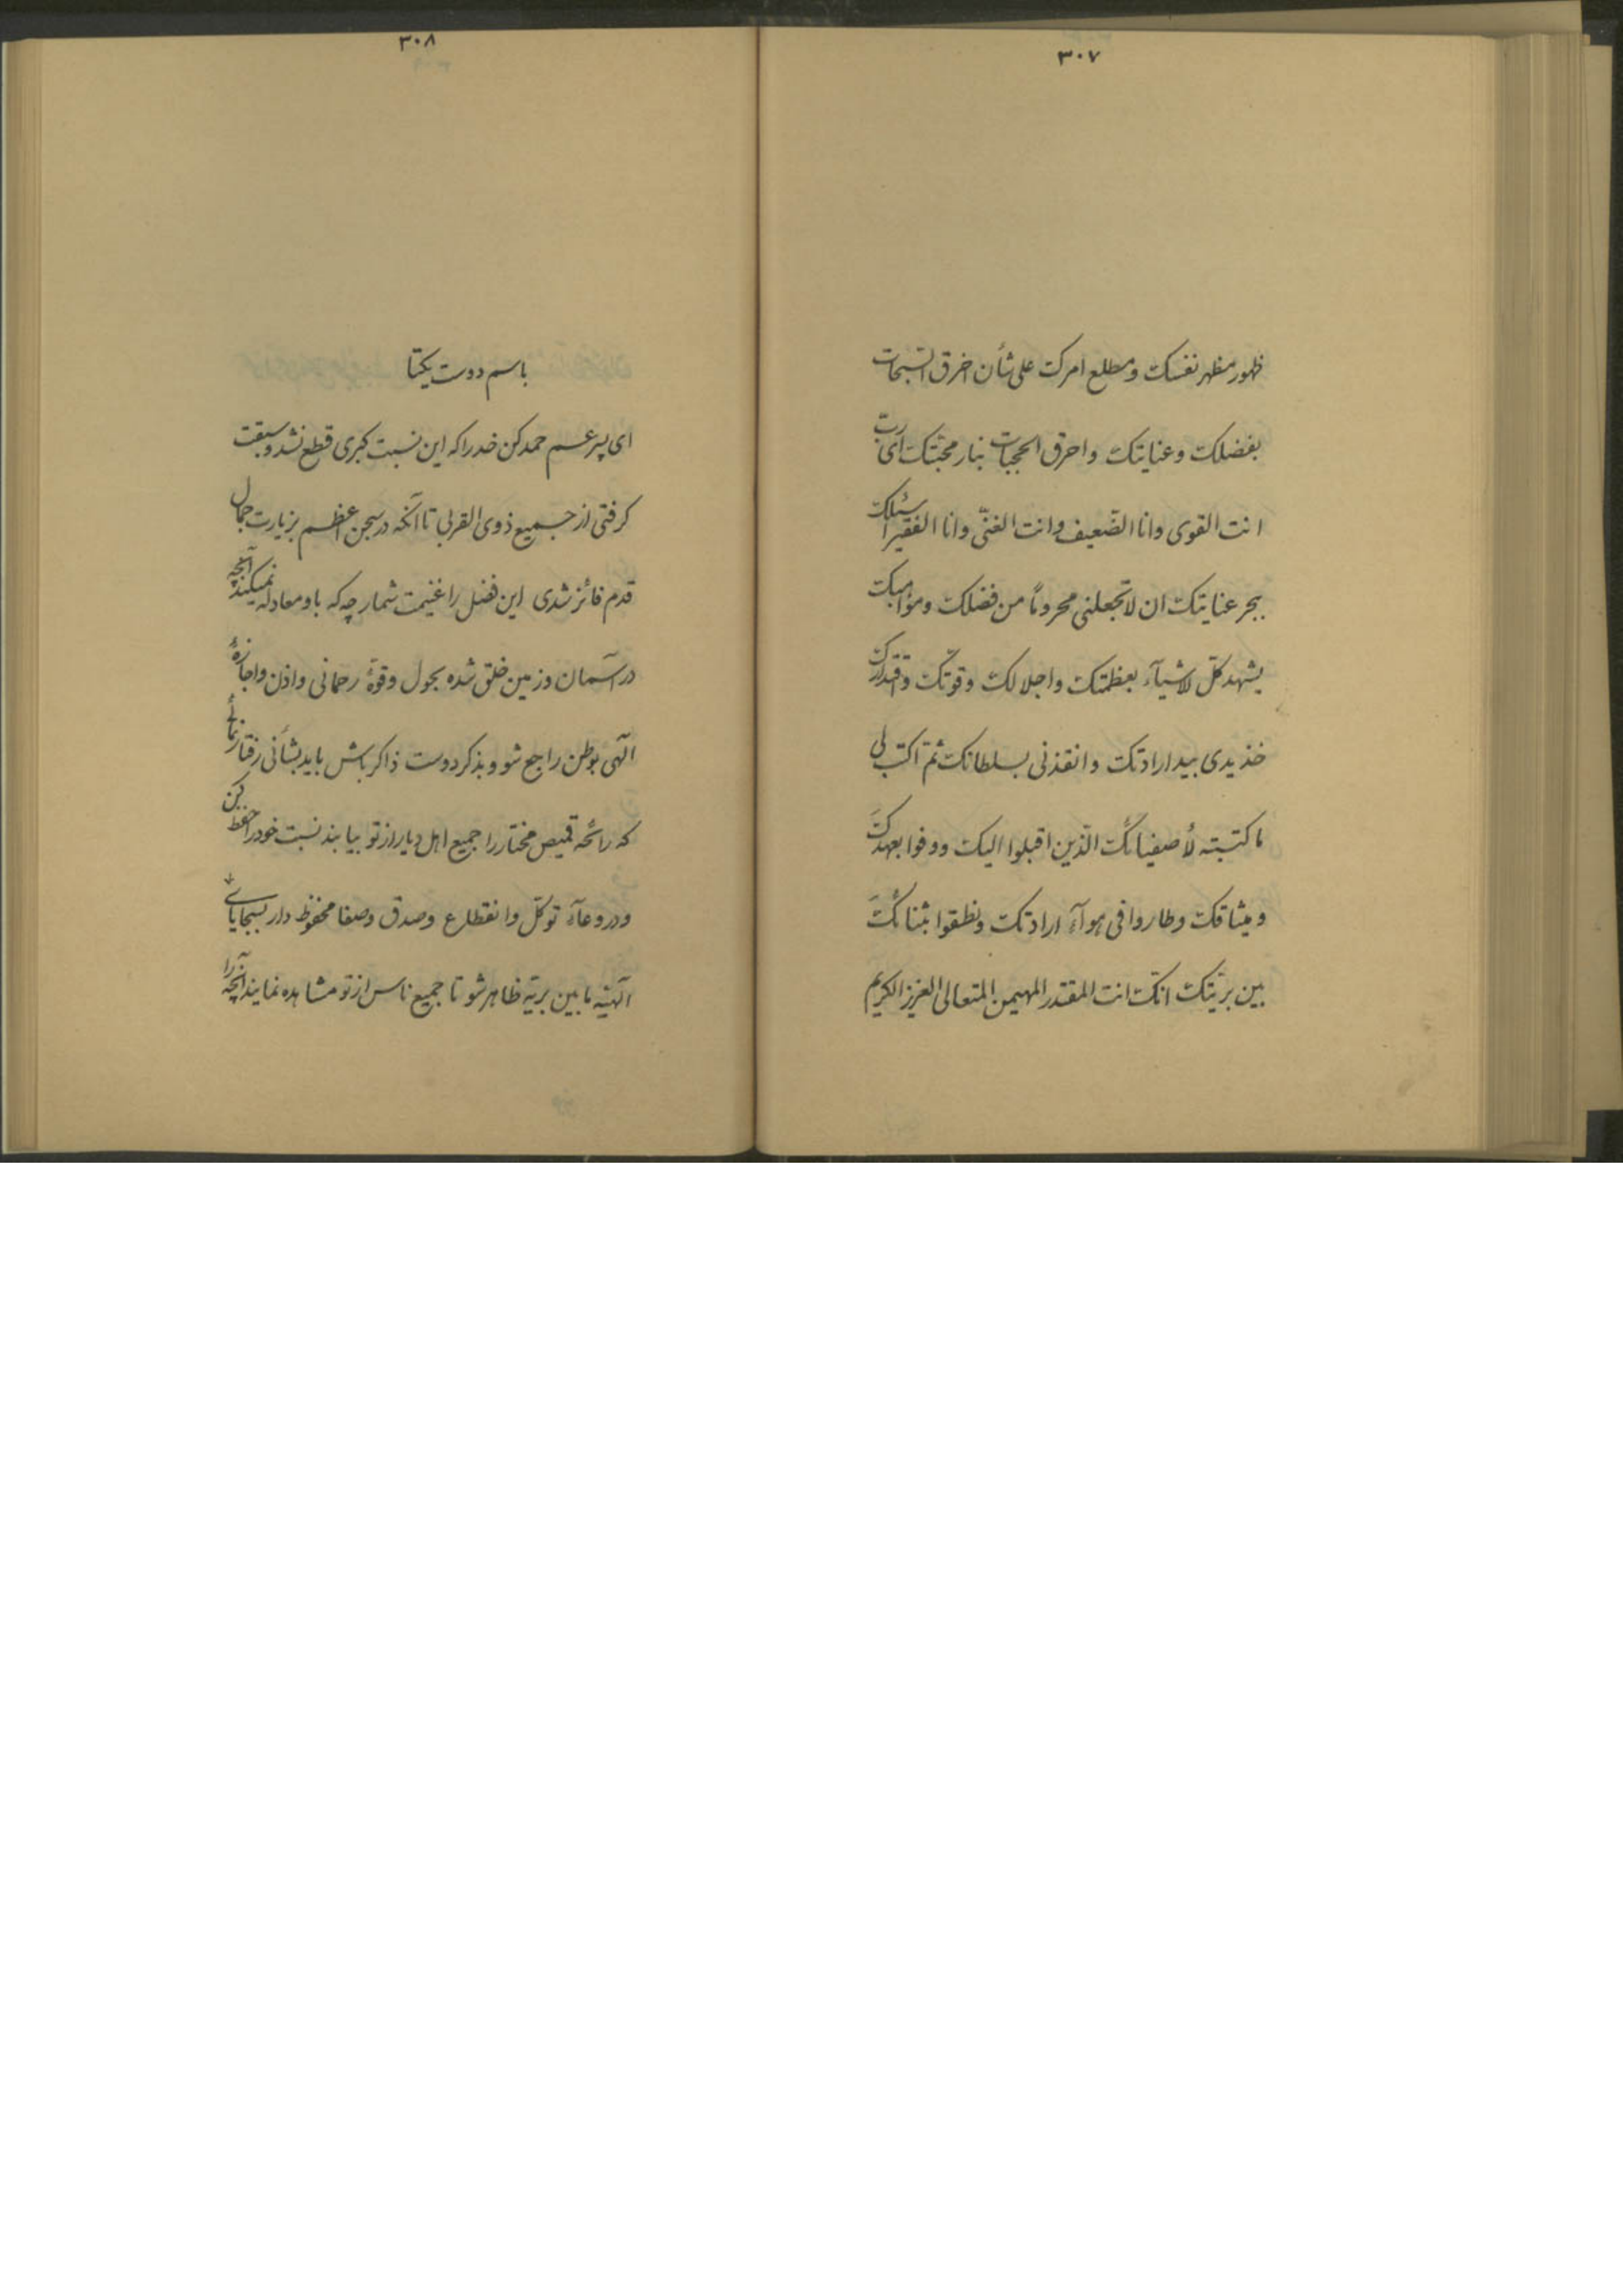 ٣٠٧
ظهور مظهر نفسک و مطلع امرک علی شأن اخرق السّبحات
بفضلک و عنایتک و احرق الحجبات بنار محبّتک ای ربّ
انت القوی و انا الضّعیف و انت الغنیّ و انا الفقیر اسئلک
ببحر عنایتک ان لا تجعلنی محروماً من فضلک و مواهبک
یشهد کلّ الاشیآء بعظمتک و اجلالک و قوّتک و اقتدارک
خذ یدی بید ارادتک و انقذنی بسلطانک ثمّ اکتب لی
ما کتبته لأصفیائک الّذین اقبلوا الیک و وفوا بعهدک
و میثاقک و طاروا فی هوآء ارادتک و نطقوا بثنائک
بین بریّتک انّک انت المقتدر المهیمن المتعالی العزیز الکریم
٣٠٨
باسم دوست یکتا
ای پسر عم حمد کن خدا را که این نسبت کبری قطع نشد و سبقت
گرفتی از جمیع ذوی القربی تا آنکه در سجن اعظم بزیارت جمال
قدم فائز شدی این فضل را غنیمت شمار چه که باو معادله نمیکند آنچه
در آسمان و زمین خلق شده بحول و قوّهٔ رحمانی و اذن و اجازهٔ
الهی بوطن راجع شو و بذکر دوست ذاکر باش باید بشأنی رفتار نمائی
که رائحه قمیص مختار را جمیع اهل دیار از تو بیابند نسبت خود را حفظ کن
و در وعآء توکّل و انقطاع و صدق و صفا محفوظ دار بسجایای
الهیّه ما بین بریّه ظاهر شو تا جمیع ناس از تو مشاهده نمایند آنچه را